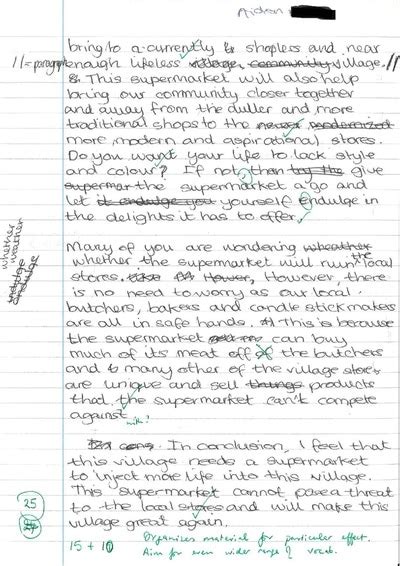 Aiden
bring to a currently & shopless and near
11 = paragraph enough lifeless village, community village. //
& This supermarket will also help
bring our community closer together
and away from the duller and more
traditional shops to the newer modernized
more modern and aspirational stores.
Do you want your life to lack style
and colour? If not, then try the give
supermar the supermarket a go and
let it endulge you yourself endulge in
the delights it has to offer.
whether
weather
endulge
Many of you are wondering wheather
whether the supermarket will ruin the local
stores. However, However, there
is no need to worry as our local
butchers, bakers and candle stick makers
are all in safe hands. This is because
the supermarket can buy
much of its meat off of the butchers
and & many other of the village stores
are unique and sell things products
that the supermarket can't compete
against. with?
In conclusion, I feel that
this village needs a supermarket
to inject more life into this village.
This supermarket cannot pose a threat
25
to the local stores and will make this
village great again.
15 + 10
Organises material for particular effect.
Aim for even wider range of vocab.